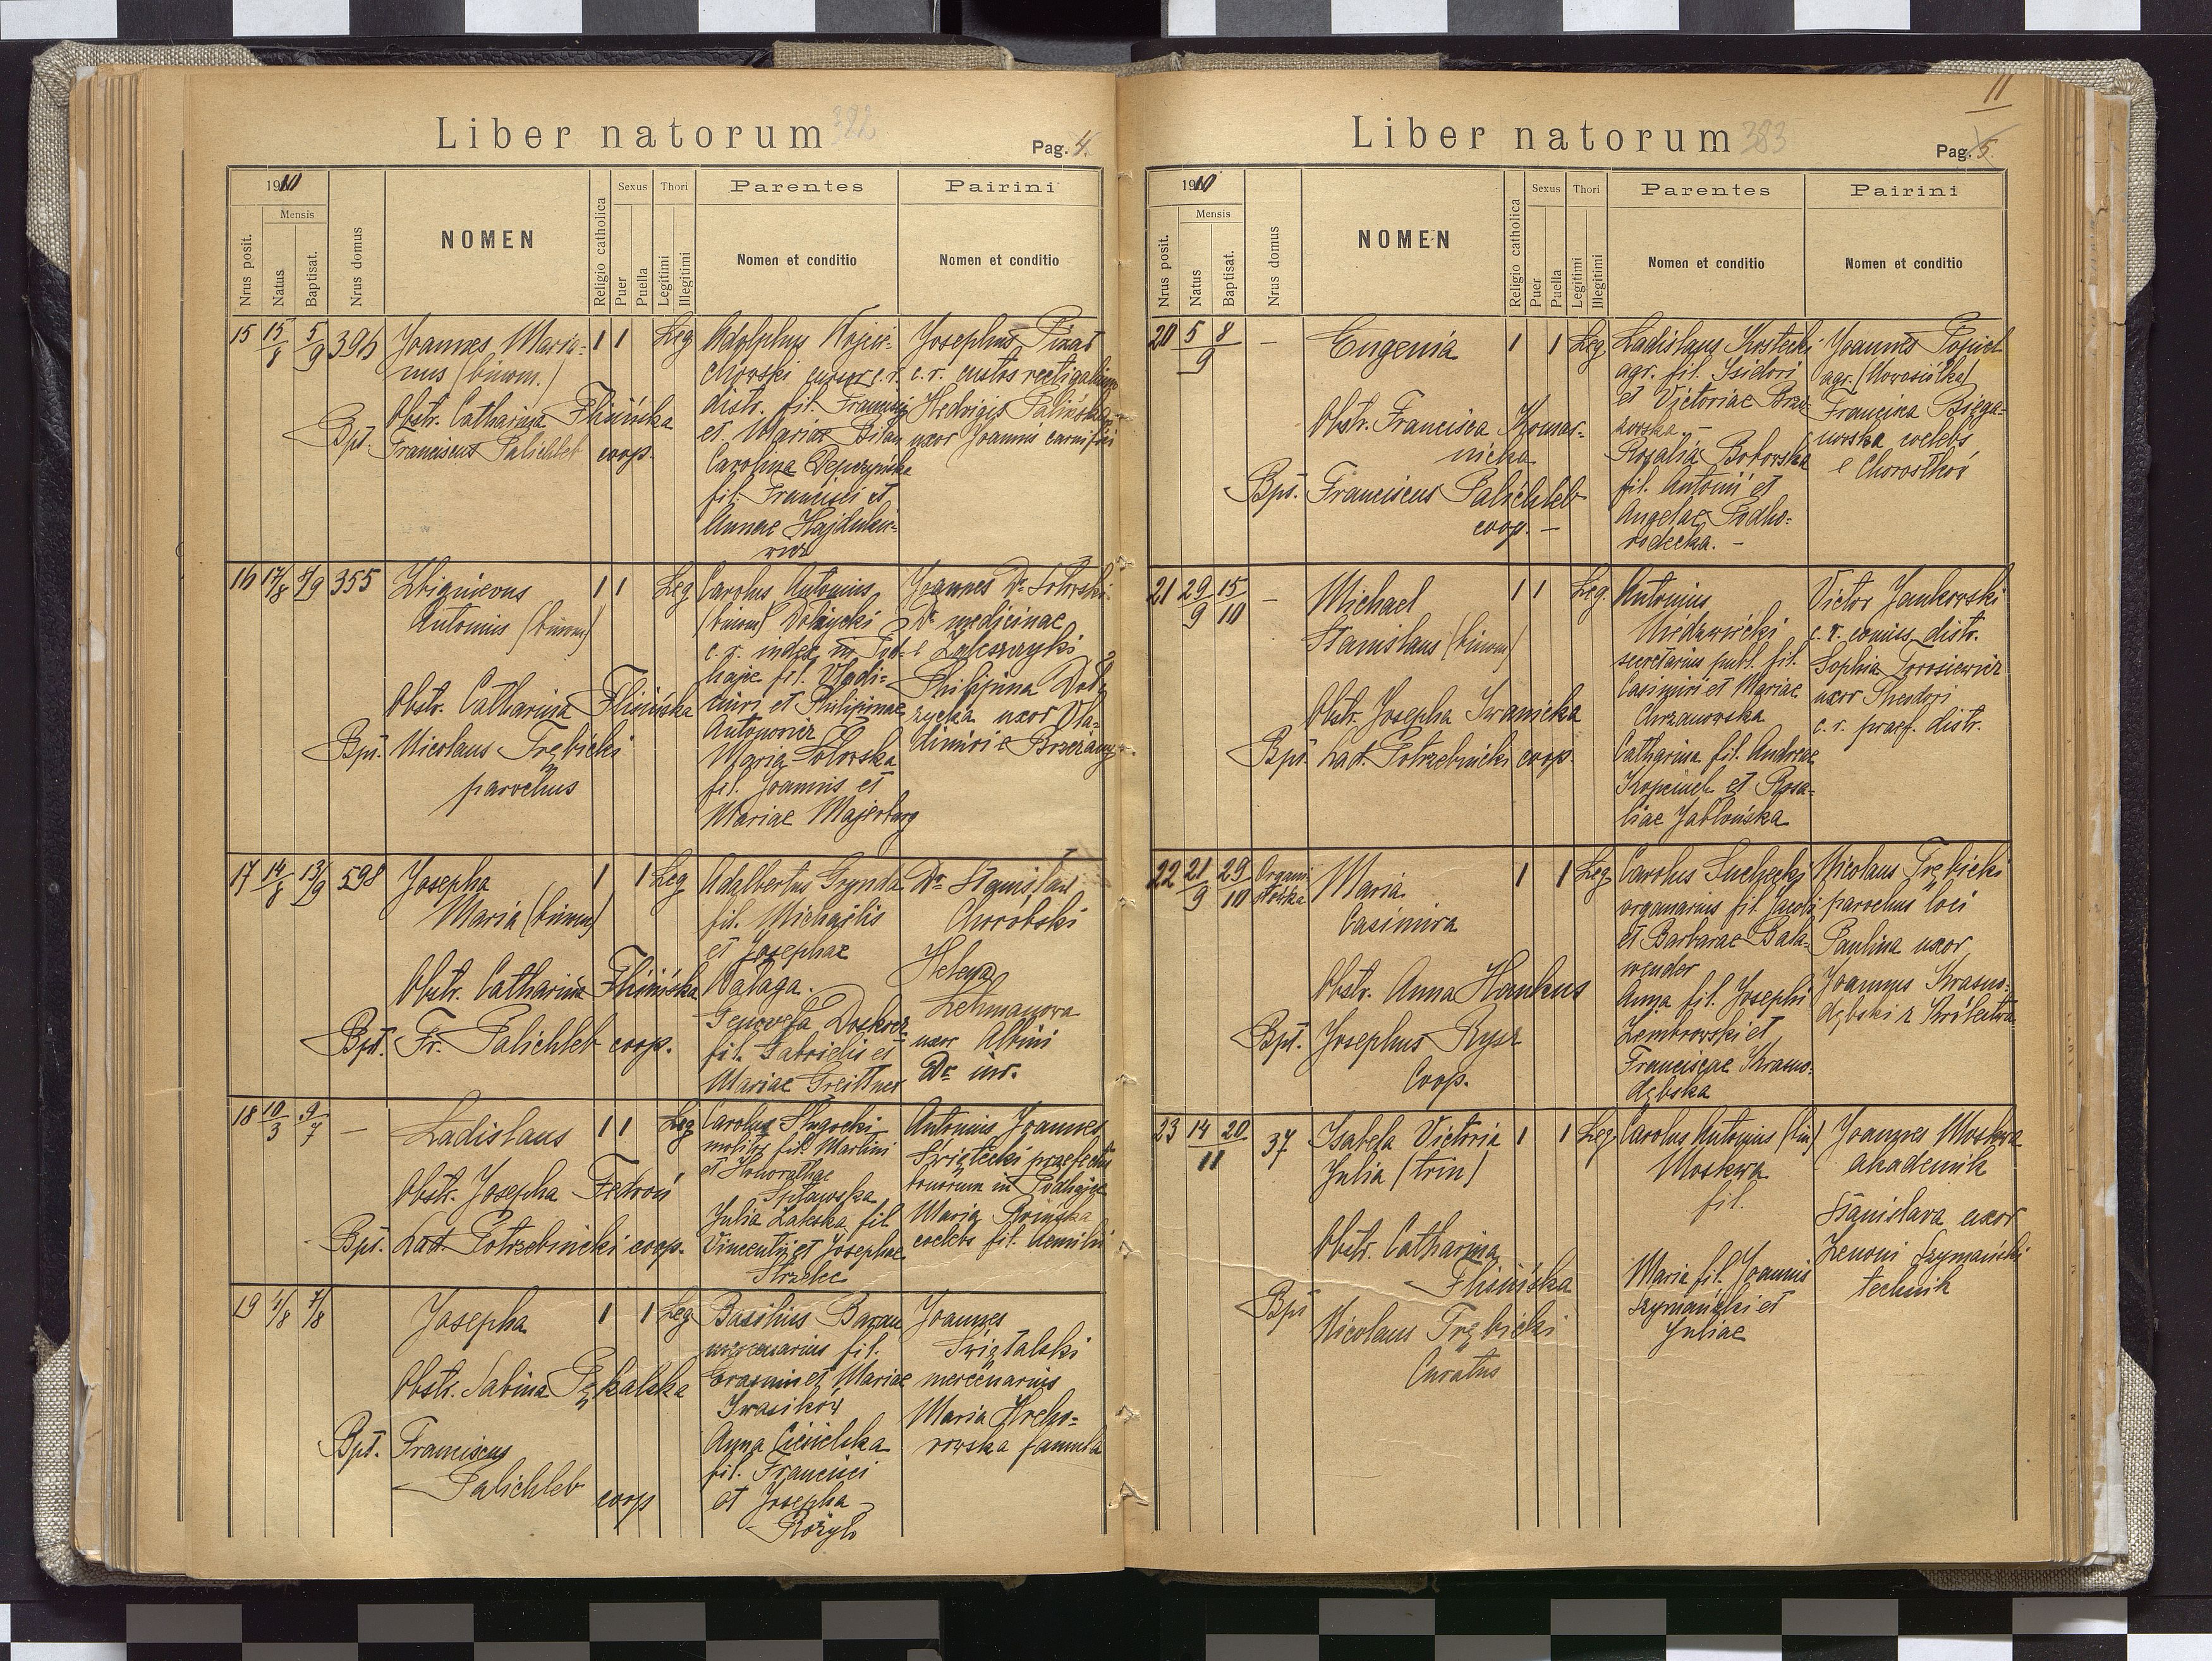 Liber natorum 382
Pag. 4.
1910
Mensis
Nrus posit.
Natus
Baptisat.
Nrus domus
NOMEN
Religio catholica
Sexus
Puer
Puella
Thori
Legitimi
Illegitimi
Parentes
Nomen et conditio
Pairini
Nomen et conditio
15 15/8 5/9 396
Joannes Maria-
nus (binom.)
Obstr. Catharina Flisińska
Bpt. Franciscus Palichleb coop.
1 1 Leg
Adolphus Wojcie-
chowski cursor c.r.
distr. fil. Francisci
et Mariae Bilan
Carolina Depczyńska
fil. Francisci et
Annae Hajdukie-
wicz
Josephus
c.r. custos vectigalium
Hedvigis Palińska
uxor Joannis carnificis
16 17/8 7/9 355
Zbignievus
Antonius (binom)
Obstr. Catharina Flisińska
Bpt. Nicolaus Trębicki
parochus
1 1 Leg
Carolus Antonius
(binom) Dobrzycki
c. r. index in Pod-
hajce fil. Vladi-
miri et Philipinae
Antonowicz
Maria Sotorska
fil. Joannis et
Mariae Majerberg
Joannes Dr Sotorski
Dr medicinae
e Zaleszczyki
Philipina Dob-
rzycka uxor Vla-
dimiri e Brzeżany
17 14/8 13/9 598
Josepha
Maria (binom)
Obstr. Catharina Flisińska
Bpt. Fr. Palichleb coop.
1 1 Leg
Adalbertus Grynda
fil. Michaelis
et Josephae
Wataga.
Genovefa
fil. Gabrielis et
Mariae Greittner
Dr Stanislaus
Chorobski
Helena
Lehmanowa
uxor Albini
Dr iur.
18 10/3 9/7 —
Ladislaus
Obstr. Josepha Fedroń
Bpt. Lad. Potrzebnicki coop.
1 1 Leg
Carolus Sługocki
molitor fil. Martini
et Honorathae
Spławska
Julia Lakska fil
Vincentii et Josephae
Strzelec
Antonius Joannes
Świętecki praefectus
bonorum in Podhajce
Maria
coelebs fil. Aemilii
19 4/8 7/8
Josepha
Obstr. Sabina Pękalska
Bpt. Franciscus
Palichleb coop
1 1 Leg
Basilius Baran
mercenarius fil.
Erasmi et Mariae
Iwasików
Anna Cieielska
fil. Francisci
et Josepha
Rożyło
Joannes
Świętalski
mercenarius
Maria Hreho-
rowska famula
11
Liber natorum 383
Pag. 5.
1910
Mensis
Nrus posit.
Natus
Baptisat.
Nrus domus
NOMEN
Religio catholica
Sexus
Puer
Puella
Thori
Legitimi
Illegitimi
Parentes
Nomen et conditio
Pairini
Nomen et conditio
20 5 8/9 —
Eugenia
Obstr. Francisca Komar-
nicka
Bpt. Franciscus Palichleb
coop. —
1 1 Leg.
Ladislaus Kostecki
agr. fil. Isidori
et Victoriae Brze-
zowska. —
Rosalia Bobowska
fil. Antonii et
Angelae Podho-
rodecka. —
Joannes Popiel
agr. (Nowosiółka)
Francisca Biega-
nowska coelebs
e Chorostków
21 29/9 15/10 —
Michael
Stanislaus (binom)
Obstr. Josepha Iwanicka
Bpt. Lad. Potrzebnicki coop.
1 1 Leg.
Antonius
Niedzwiecki
secretarius publ. fil.
Casimiri et Mariae
Chrzanowska
Catharina fil. Andreae
et Rosa-
liae Jabłońska
Victor Jankowski
c. r. comiss. distr.
Sophia Torosiewicz
uxor Theodori
c. r. praef. distr.
22 21/9 29/10 Organi-
stówka
Maria
Casimira
Obstr. Anna Hankus
Bpt. Josephus Rysz
Coop.
1 1 Leg
Carolus Suchecki
organarius fil. Jacobi
et Barbarae Bala-
wender
Anna fil. Josephi
Zembrowski et
Franciscae Krasno-
dębska
Nicolaus Trębicki
parochus loci
Paulina uxor
Joannis Krasno-
dębski z Królestwa
23 14 20/11 37
Isabela Victoria
Julia (trin)
Obstr. Catharina
Flisińska
Bpt Nicolaus Trębicki
Curatus
1 1 Leg
Carolus Antonius (bin)
Moskwa
fil.
Maria fil. Joannis
Szymański et
Juliae
Joannes Moskwa
akademik
Stanislava uxor
Zenoni Szymański
technik